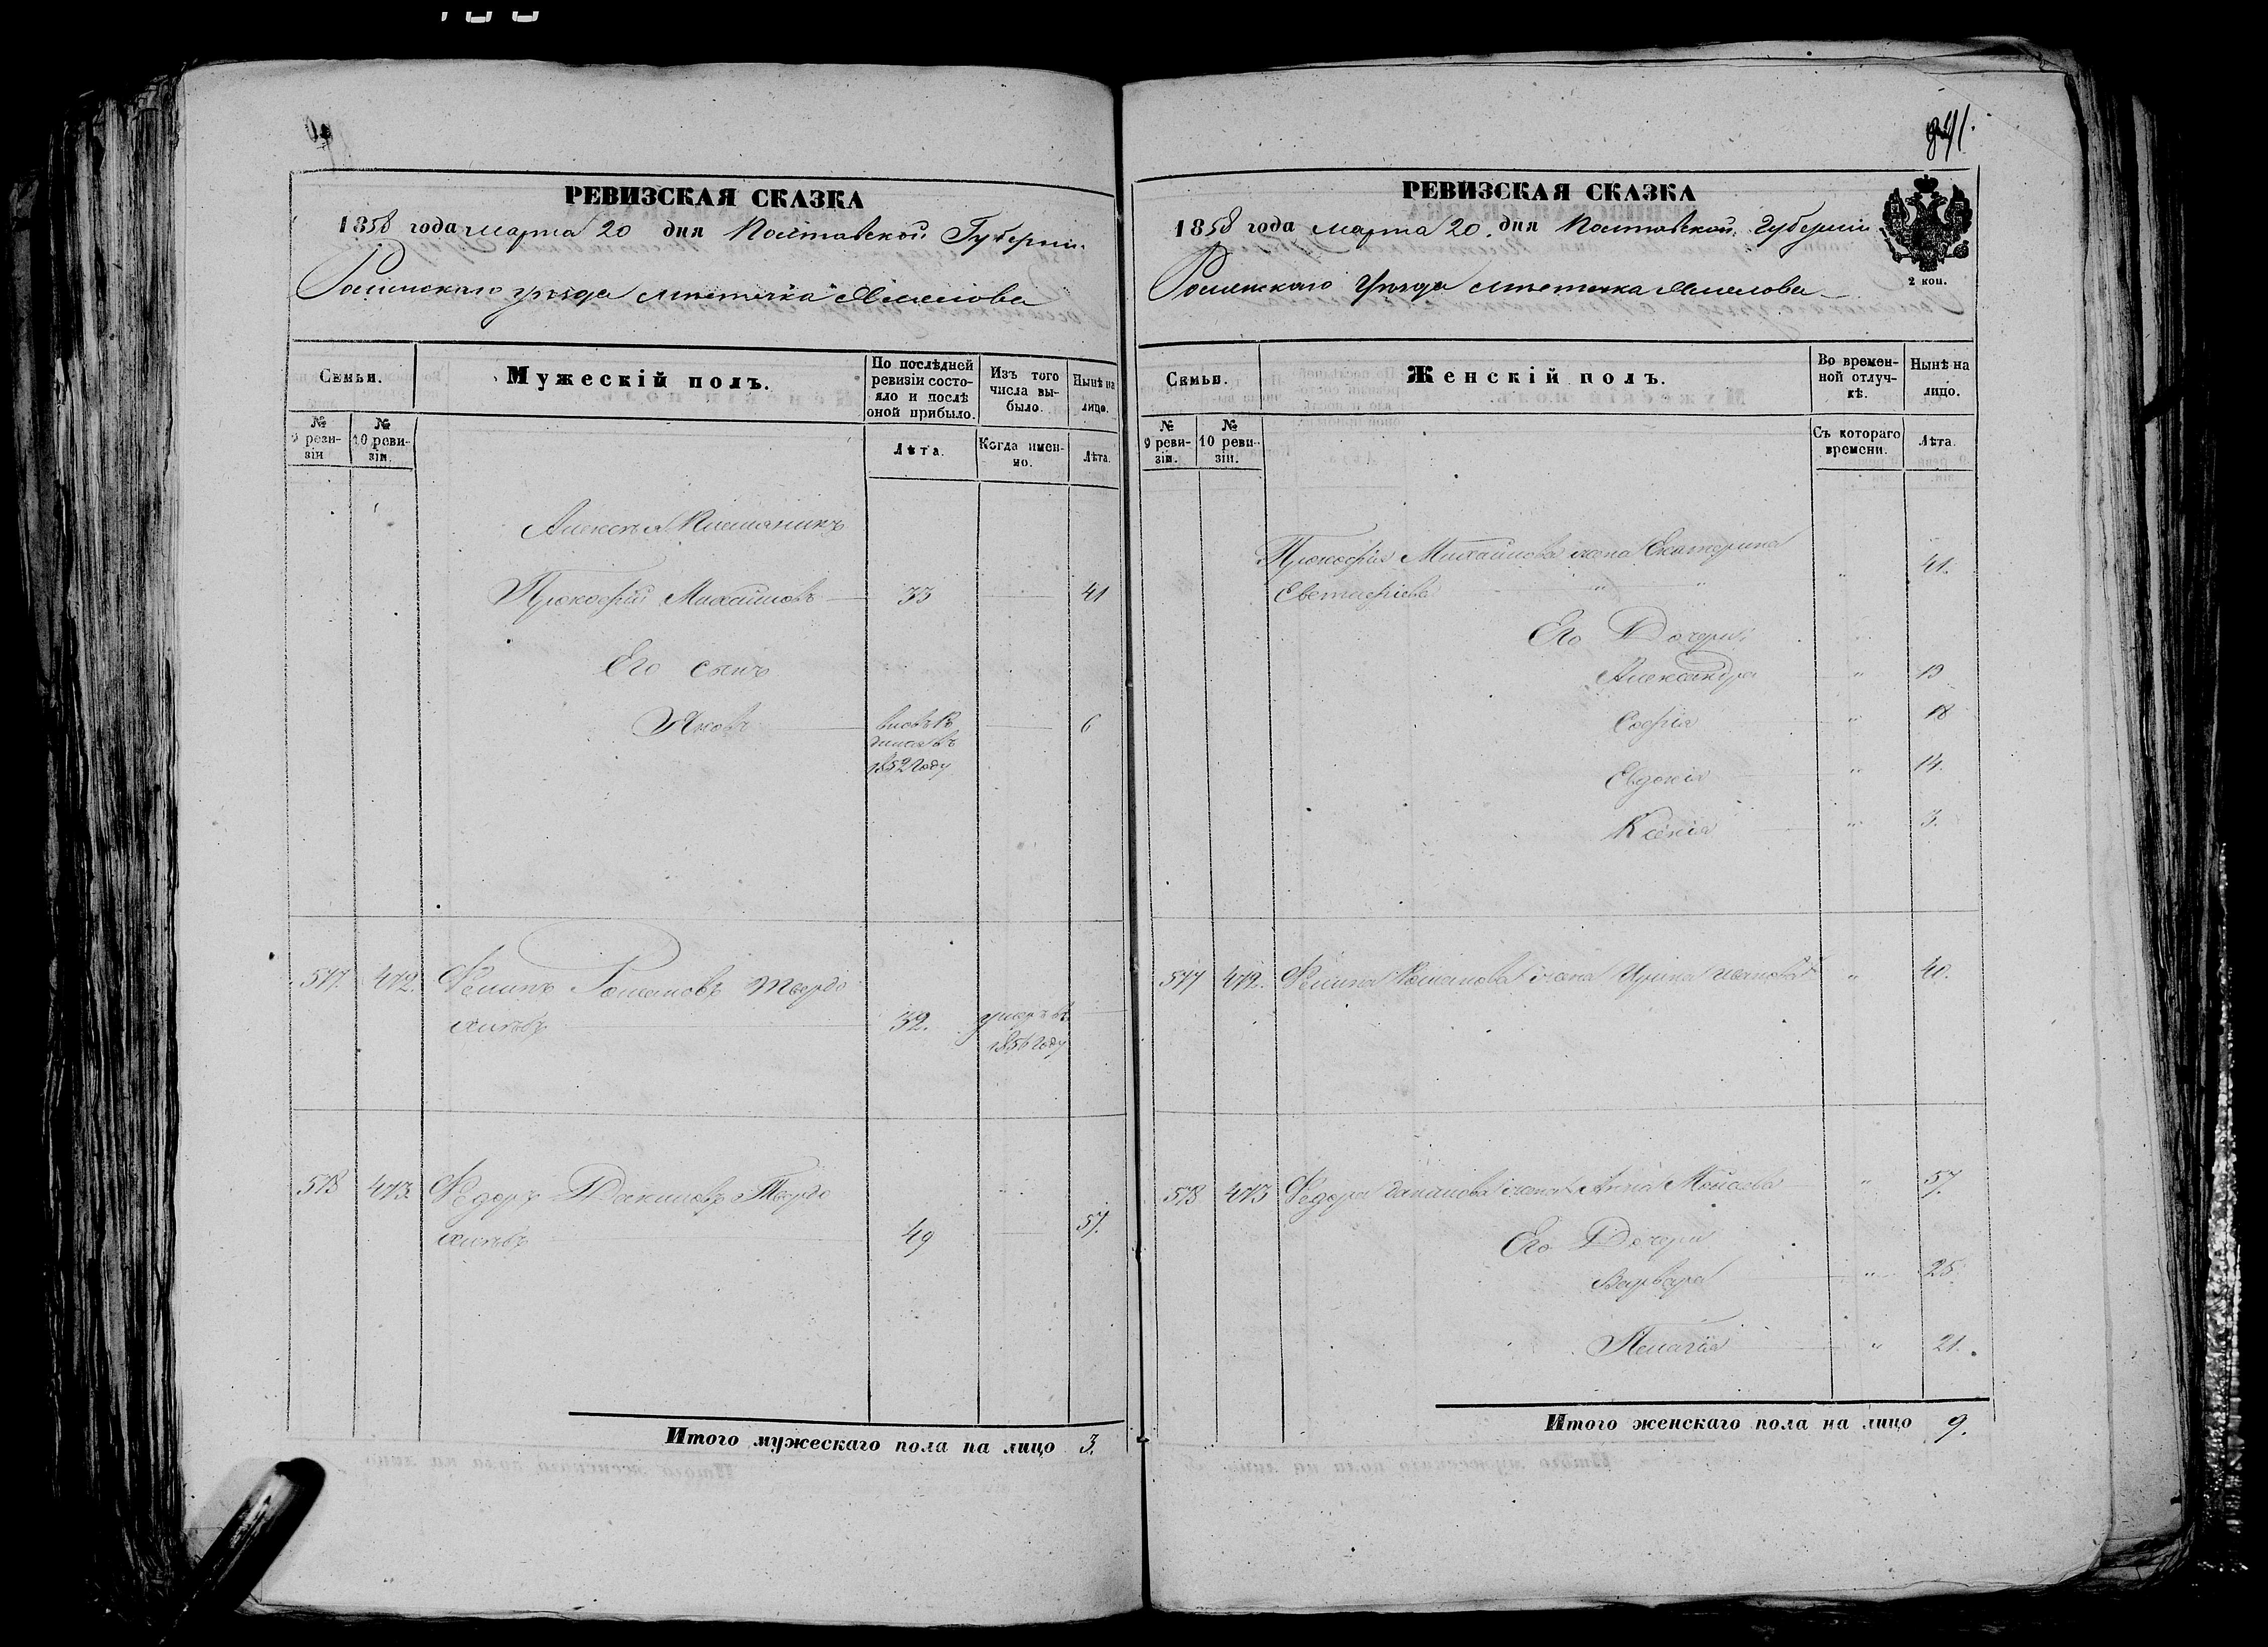 РЕВИЗСКАЯ СКАЗКА
1858 года марта 20 дня Полтавской Губерніи
Роменскаго уѣзда мѣстечка Смѣлова
Семьи.
Мужескій полъ.
По послѣдней ревизіи состояло и послѣ оной прибыло.
Изъ того числа выбыло.
Нынѣ на лицо.
№ 9 ревизіи
№ 10 ревизіи.
Лѣта.
Когда именно.
Лѣта.
Алексѣя Племяникъ
Прокофій Михайловъ 33 41
Его сынъ
Яковъ 6
1852 году
577. 472. Филипъ Романовъ Твердо
хлѣбъ 32. умеръ въ
1856 году
578 473. Федоръ Даниловъ Твердо
хлѣбъ 49 57.
Итого мужескаго пола на лицо 3.
841.
РЕВИЗСКАЯ СКАЗКА
1858 года марта 20. дня Полтавской Губерніи
Роменскаго Уѣзда мѣстечка Смѣлова
2 коп.
Семьи.
Женскій полъ.
Во временной отлучкѣ.
Нынѣ на лицо.
№ 9 ревизіи.
№ 10 ревизіи.
Съ котораго времени.
Лѣта.
Прокофія Михайлова жена Екатерина
Евстафіева " 41.
Его Дочери
Александра " 19
Софія " 18
Евдокія " 14.
Ксенія " 3.
577 472. Филипа Романова жена Ирина Иванова " 40.
578 473 Федора Данилова жена Анна " 57.
Его Дочери
Варвара " 25.
Пелагія " 21.
Итого женскаго пола на лицо 9.